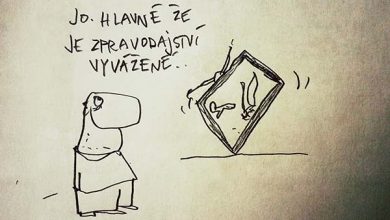 JO. HLAVNĚ ŽE
JE ZPRAVODAJSTVÍ
VYVÁŽENÉ..